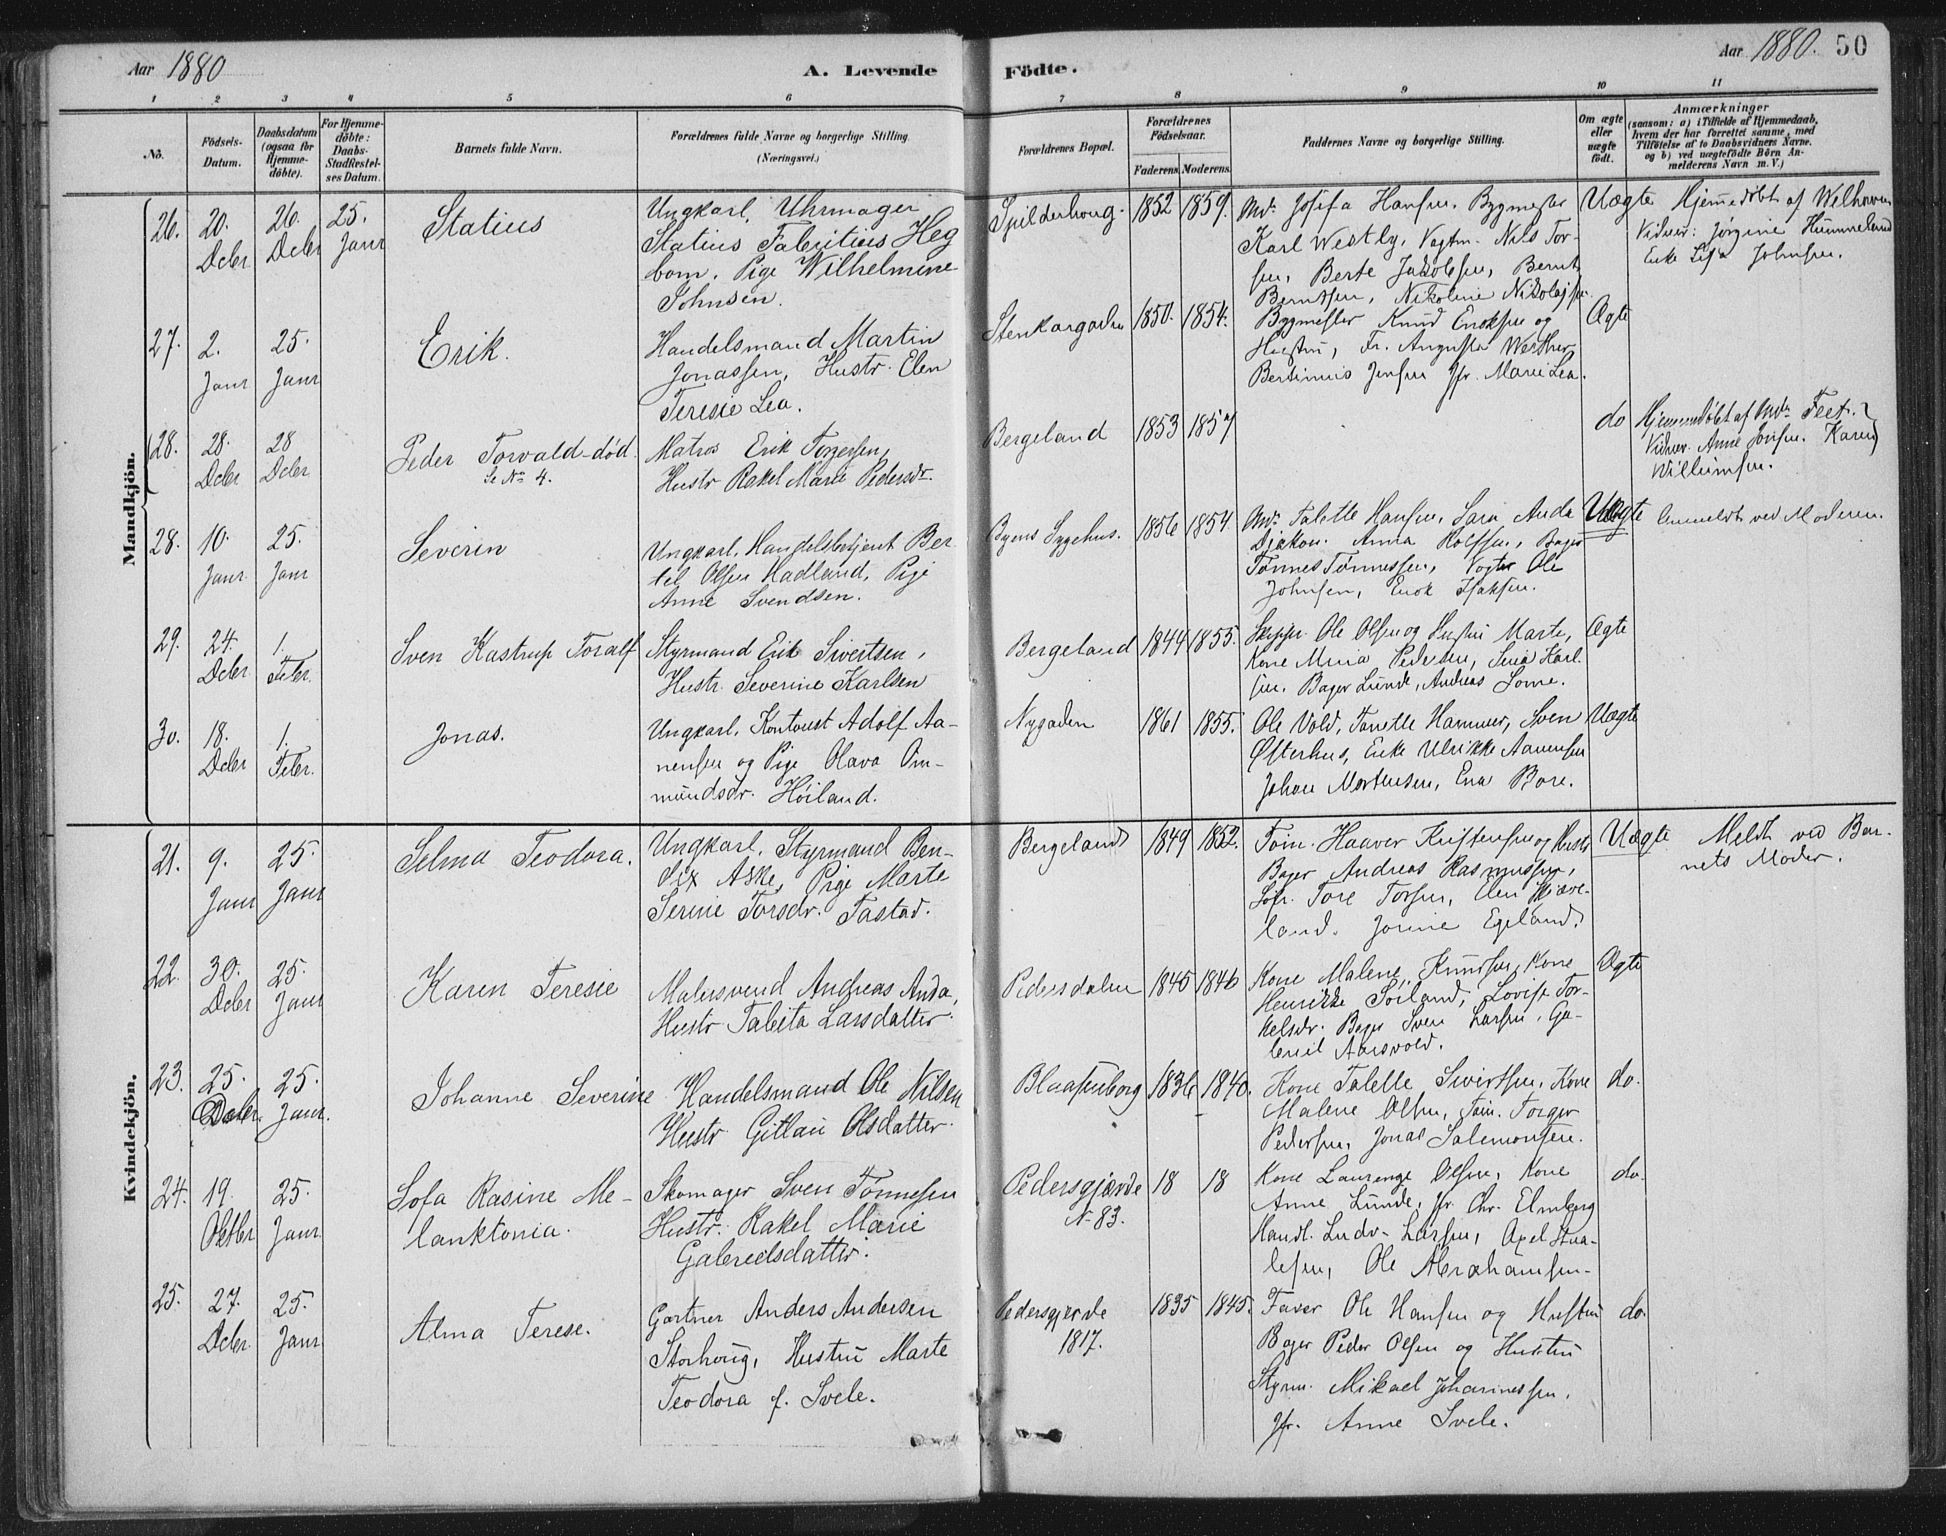 Aar 1880
A. Levende
Födte.
Aar 1880. 50
1 2 3 4 5 6 7 8 9 10 11
Nô.
Födsels-Datum.
Daabsdatum (ogsaa för Hjemme-döbte).
For Hjemme-döbte: Daabs-Stadfæstel-ses Datum.
Barnets fulde Navn.
Forældrenes fulde Navne og borgerlige Stilling. (Næringsvei.)
Forældrenes Bopæl.
Forældrenes Födselsaar.
Faderens Moderens
Faddernes Navne og borgerlige Stilling.
Om ægte eller uægte födt.
Anmærkninger
(saasom: a) i Tilfælde af Hjemmedaab,
hvem der har forrettet samme, med
Tilföielse af to Daabsvidners Navne.
og b) ved uægtefödte Börn An-
melderens Navn m. V.)
Mandkjön.
26. 20. Dcbr 26. Dcbr 25. Janr
Statius
Ungkarl, Uhrmager
Statius Fabritius Heg
bom. Pige Wilhelmine
Johnsen.
Spilderhoug. 1852 1859.
Josefa Hansen, Bygmester
Karl Westly, Vogtm. Nils Tor-
sen, Berte Jakobsen, Bernt
Berntsen, Nikoline Nikolajsen.
Uægte
Hjemmedøbt af
Vidner: Jørgine Hummeland
Enke Johnsen.
27. 2. Janr 25. Janr
Erik.
Handelsmand Martin
Jonassen, Hustr. Elen
Teresie Lea.
Stenkargaden 1850. 1854.
Bygmester Knud Enoksen og
Hustru, Fr. Augusta
Bertinius Jensen Jfr. Marie Lea.
Ægte
28. 28. Dcbr 28 Dcbr
Peder Torvald-død.
Se No 4.
Matros Erik Torgersen,
Hustr Rakel Marie Pedersdr.
Bergeland 1853 1857
do
Hjemmedøbt af
Vidner. Anne Jonsen. Karen
28. 10. Janr 25. Janr
Severin
Ungkarl, Handelsbetjent Ber
tel Olsen Hadland, Pige
Anne Svendsen.
Byens Sygehus. 1856 1854.
Talette Hansen, Sara Anda
Djakon. Anna Rolfsen, Bager
Tønnes Tønnessen, Vogter Ole
Johnsen, Enok Isaksen.
Uægte
Anmeldt ved Moderen.
29. 24. Dcbr 1. Febr.
Sven Kastrup Toralf
Styrmand Erik Sivertsen,
Hustr. Severine Karlsen
Bergeland 1844 1855.
Skipper Ole Olsen og Hustru Marte,
Kone Mina Pedersen, Sina Karl
sen. Bager Lunde, Andreas Lome.
Ægte
30. 18. Dcbr 1. Febr.
Jonas.
Ungkarl. Kontorist Adolf Aa-
nensen og Pige Olava Om-
mundsdr. Høiland.
Nygaden 1861 1855.
Ole Vold, Tanette Hammer, Sven
Østerhus, Enke Ulrikke Aanensen
Johan Mortensen, Ena Bore.
Uægte
Kvindekjön.
21. 9. Janr 25. Janr
Selma Teodora.
Ungkarl. Styrmand Ben-
dix Aske, Pige Marte
Serine Torsdr. Tastad.
Bergeland 1849 1852.
Tøm. Haaver Kristensen og Hustr
Bager Andreas Rasmussen,
Tore Torsen, Elen Skjæve-
land. Jorine Egeland.
Uægte
Meldt ved Bar-
nets Moder.
22. 30. Dcbr 25. Janr
Karen Teresie
Malersvend Andreas Anda,
Hustr Tabita Larsdatter.
Pedersdalen 1845 1846
Kone Malene Knudsen, Kone
Henrikke Soiland, Lovise Tor-
kelsdr. Bager Sven Larsen, Ga-
briel Aarsvold.
Ægte
23. 25. Dcbr. 25. Janr.
Johanne Severine
Handelsmand Ole Nilsen
Hustr Gitlau Olsdatter.
Blaasenborg 1836 1840.
Kone Talette Sivertsen, Kone
Malene Olsen, Tøm. Torger
Pedersen, Jonas Salomonsen.
do.
24. 19. Oktbr 25. Janr
Sofa Rasine Me-
lanktonia.
Skomager Sven Tønnesen
Hustr. Rakel Marie
Gabrielsdatter.
Pedersgjærde
N. 83.
18 18
Kone Laurenze Olsen, Kone
Anne Lunde, Jfr. Chr. Elmberg
Handl. Ludv. Larsen, Axel Staa-
lesen, Ole Abrahamsen.
do.
25. 27. Dcbr 25. Janr
Alma Terese.
Gartner Anders Andersen
Storhoug, Hustru Marte
Teodora f. Svele.
Pedersgjerde
1817.
1835 1845.
Faver Ole Hansen og Hustru
Bager Peder Olsen og Hustru
Styrm. Mikael Johannessen,
Jfr. Anne Svele.
do.